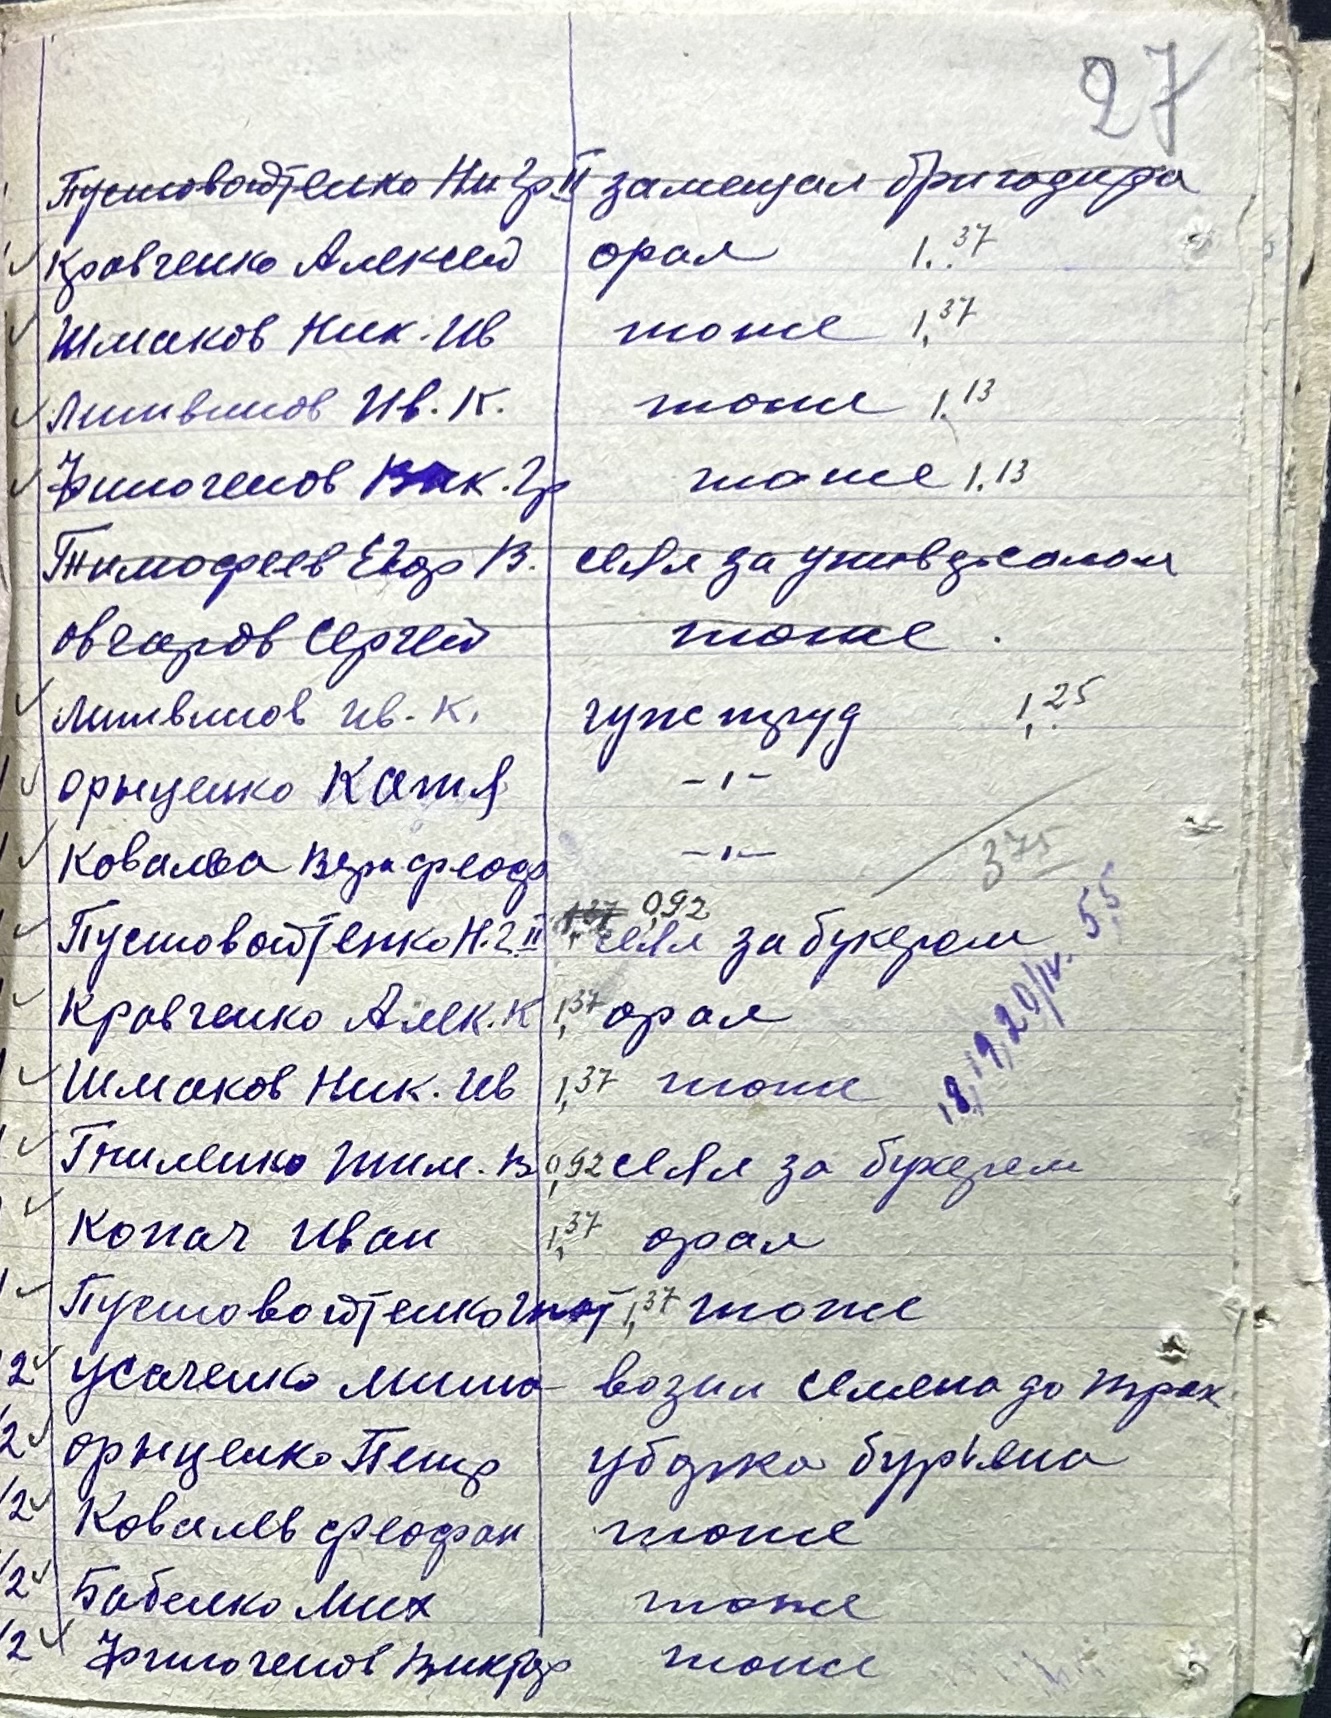 27
Пустовойтенко Ни Гр II замещал бригадира
Кравченко Алексей орал 1.37
Шмаков Ник. Ив тоже 1,37
Литвинов Ив. К. тоже 1.13
Филогенов Вик. Гр тоже 1.13
Тимофеев Егор В. сеял за
Овчаров Сергей тоже
Литвинов Ив. К. гужтруд 1,25
Орыщенко Катя -"-
375
Ковалева Вера Феоф -"-
1,37 0,92
Пустовойтенко Н.Г. II сеял за букером
Кравченко Алек. К 1,37 орал
18,19,20/IV. 5,5
Шмаков Ник. Ив 1,37 тоже
Гниленко Тим. В 0,92 сеял за букером
Копач Иван 1,37 орал
Пустовойтенко Игнат 1,37 тоже
2 Усаченко Миша возил семена до трак.
2 Орыщенко Петр уборка бурьяна
/2 Ковалев Феофан тоже
/2 Бабенко Мих тоже
/2 Филогенов Виктор тоже